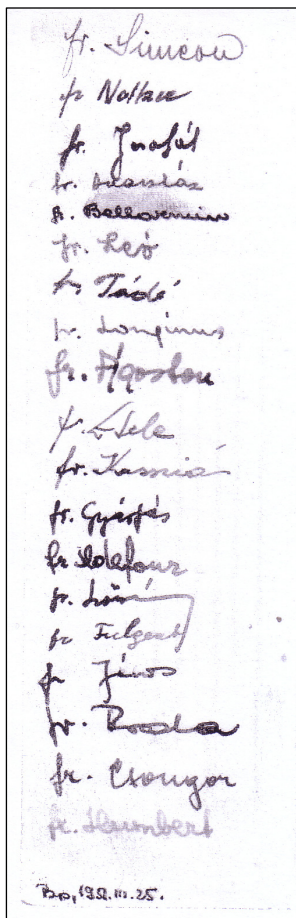 fr. Simeon
fr. Nathan
fr. Jozafát
fr. Anasztáz
fr. Bellarmin
fr. Leó
fr. Tádé
fr. Longinus
fr. Ágoston
fr. Etele
fr. Kasszián
fr. Gyárfás
fr. Ildefonz
fr.
fr. Fulgent
fr. János
fr.
fr. Csongor
fr. Humbert
Bp, 1952. III. 25.